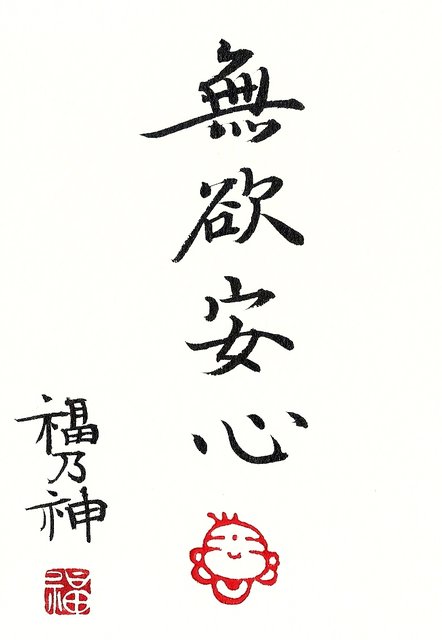 無欲安心
福乃神
福